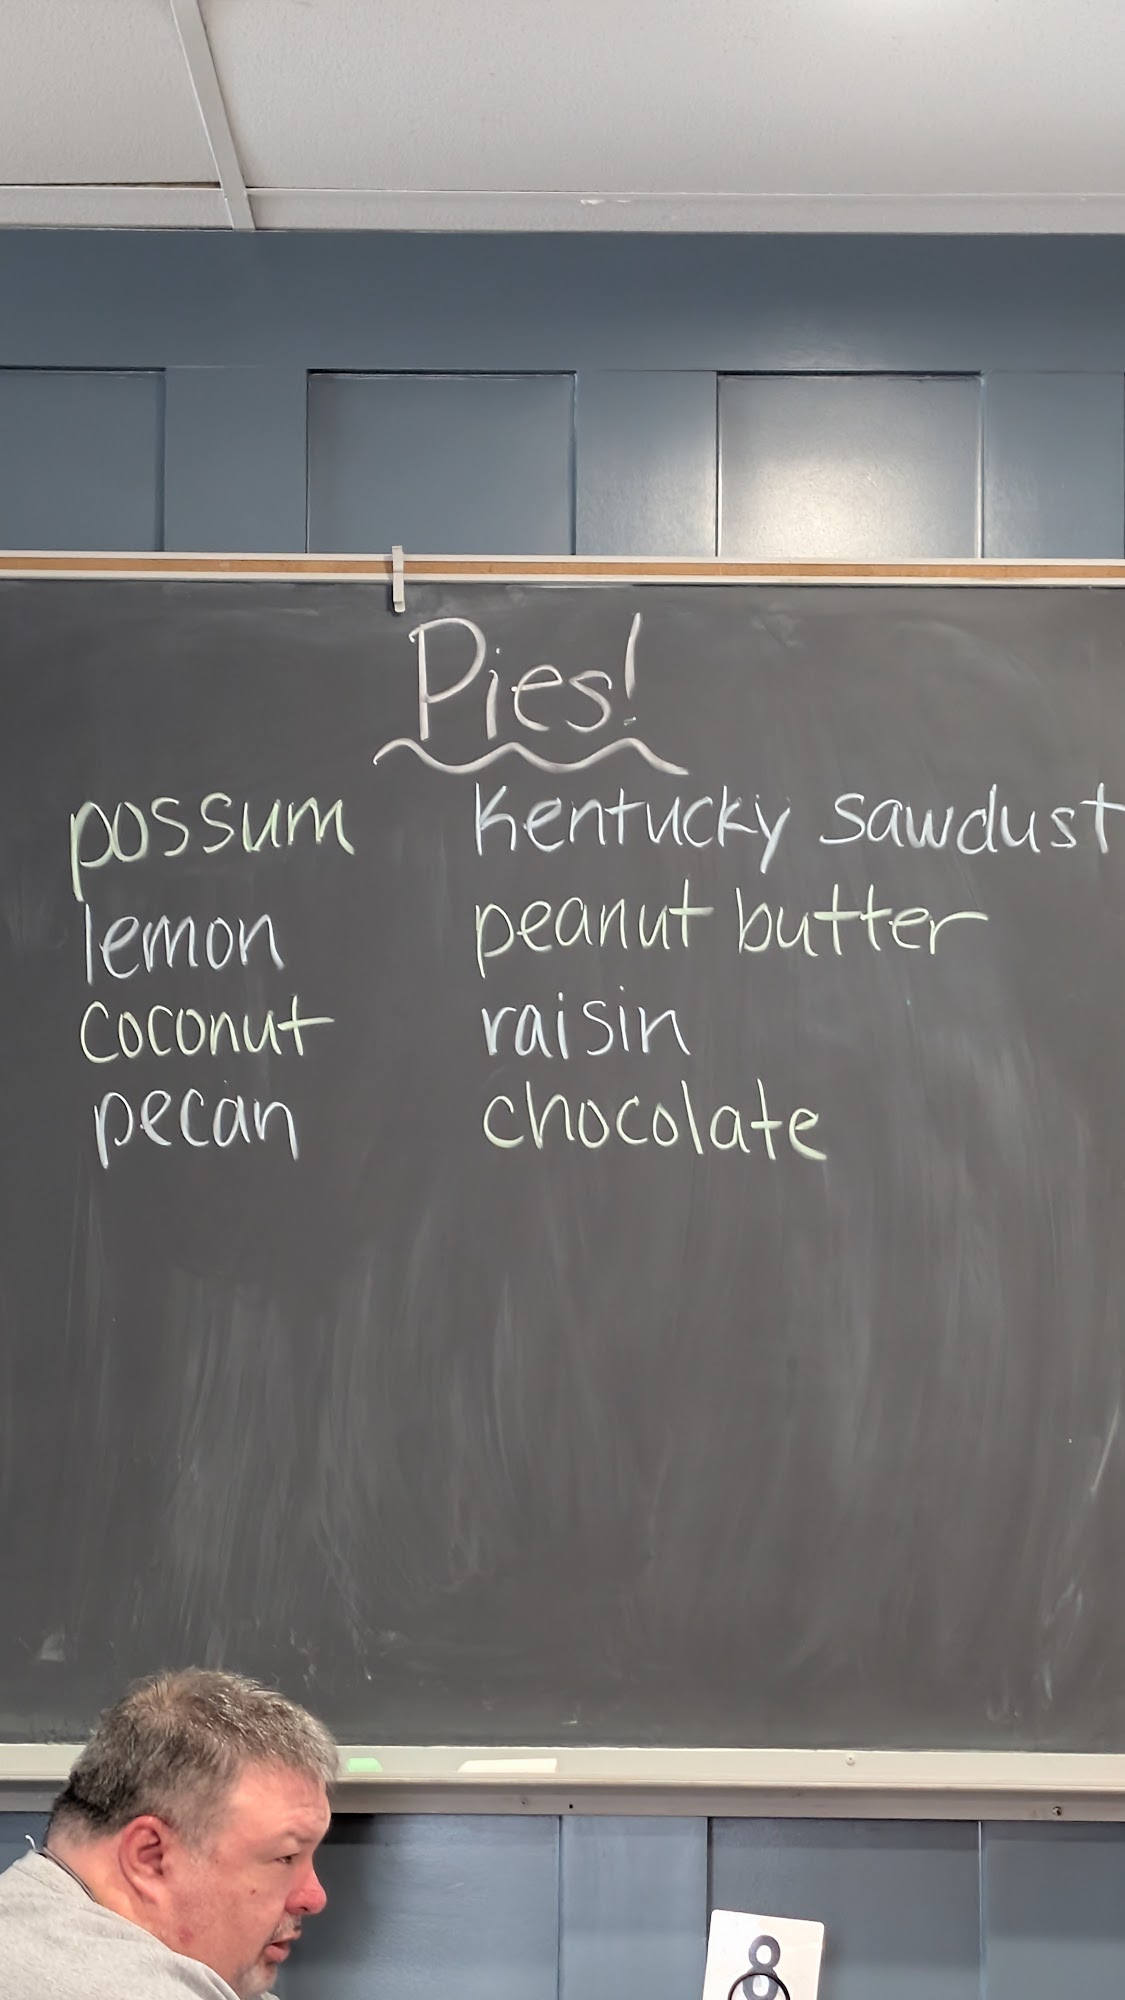 Pies!
possum
lemon
coconut
pecan
Kentucky sawdust
peanut butter
raisin
chocolate
8